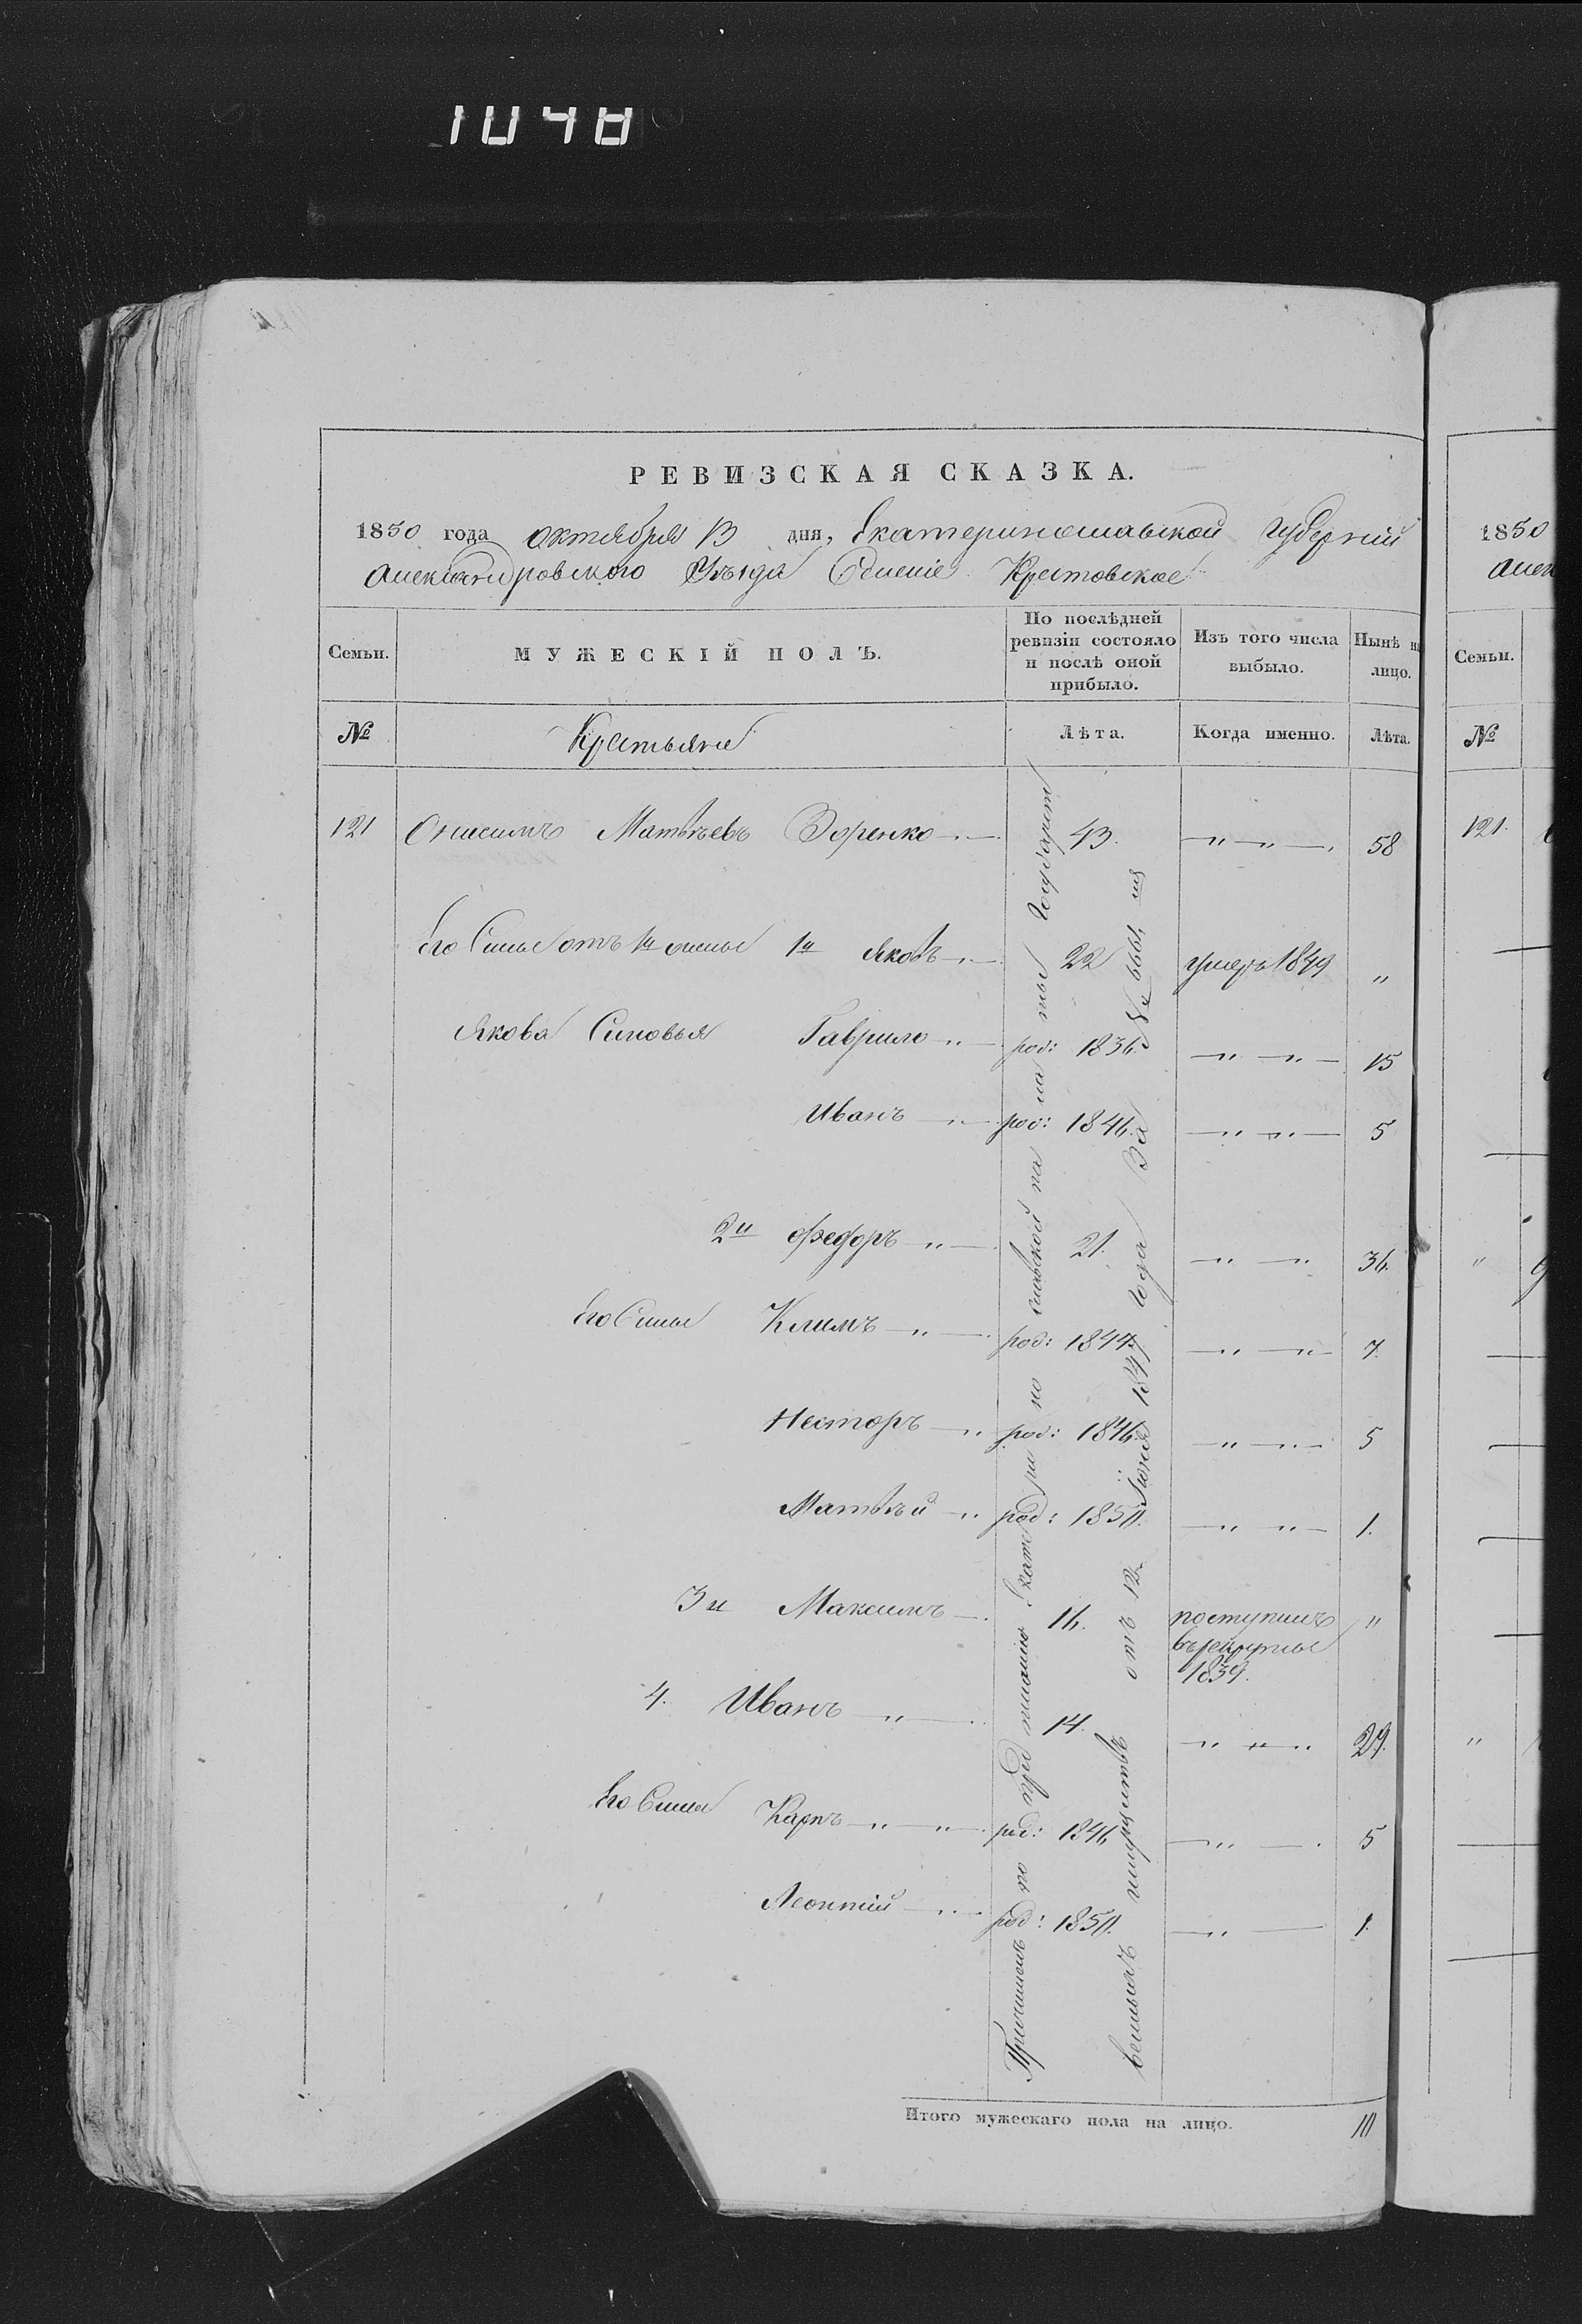 1048
РЕВИЗСКАЯ СКАЗКА.
1850 года октября 13 дня, Екатеринославской Губернии
Александровского Уезда Селение Крестовское
Семьи.
МУЖЕСКІЙ ПОЛЪ.
По послѣдней ревизіи состояло и послѣ оной прибыло.
Изъ того числа выбыло.
Нынѣ на лицо.
№
Крестьяне
Лѣта.
Когда именно.
Лѣта.
121 Онисимъ Матвѣевъ Зоренко 43. 58
Его Сины от 1й жены 1й Яковъ 22 умеръ 1849 "
Якова Синовья Гаврило род: 1836. 15
Иванъ род: 1846. 5
2й Федоръ 21. 36.
Его Сины Климъ род: 1844. 7.
Несторъ род: 1846. 5
Матвѣй род: 1850. 1.
3й Максимъ 16. поступилъ "
въ рекруты
1839.
4. Иванъ 14. 29.
Его Сины Карпъ род: 1846 5
Леонтій род: 1850. 1.
Причислен по предписанію Екатеринославской палаты Государст
венныхъ имуществъ отъ 12 Июня 1847 года за № 9991
Итого мужескаго пола на лицо. 10
1850
Алек
Семьи.
№
121.